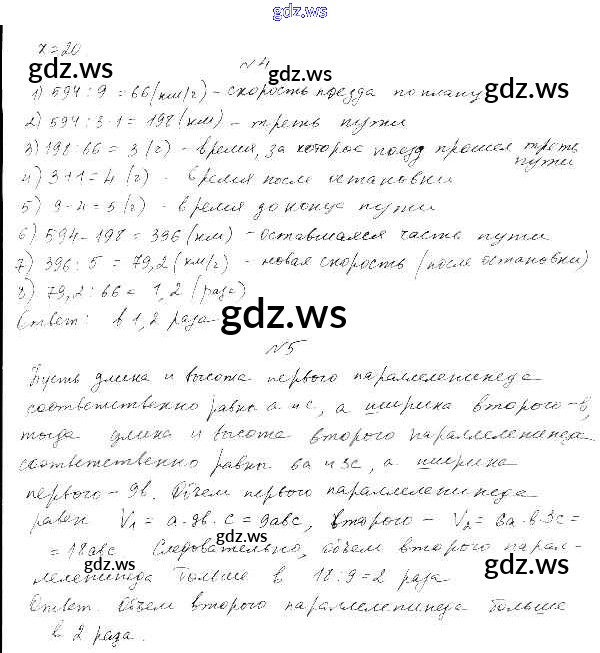 gdz.ws
x=20
gdz.ws
№4
gdz.ws
1) 594:9 = 66 (км/г) - скорость поезда по плану
2) 594:3·1 = 198 (км) - треть пути
3) 198:66 = 3 (г) - время, за которое поезд прошел треть
пути
4) 3+1=4 (г) - время после остановки
5) 9-4=5 (г) - время до конца пути
6) 594-198 = 396 (км) - оставшаяся часть пути
7) 396:5 = 79,2 (км/г) - новая скорость (после остановки)
8) 79,2:66 = 1,2 (раза)
Ответ: в 1,2 раза
gdz.ws
№5
Пусть длина и высота первого параллелепипеда
соответственно равны a и c, а ширина второго - b,
тогда длина и высота второго параллелепипеда
соответственно равны 6a и 3c, а ширина
первого - 9b. Объем первого параллелепипеда
равен V₁ = a·9b·c = 9abc, второго - V₂ = 6a·b·3c =
gdz.ws
= 18abc Следовательно, объем второго парал-
gdz.ws
gdz.ws
лелепипеда больше в 18:9=2 раза
Ответ. Объем второго параллелепипеда больше
в 2 раза.
gdz.ws